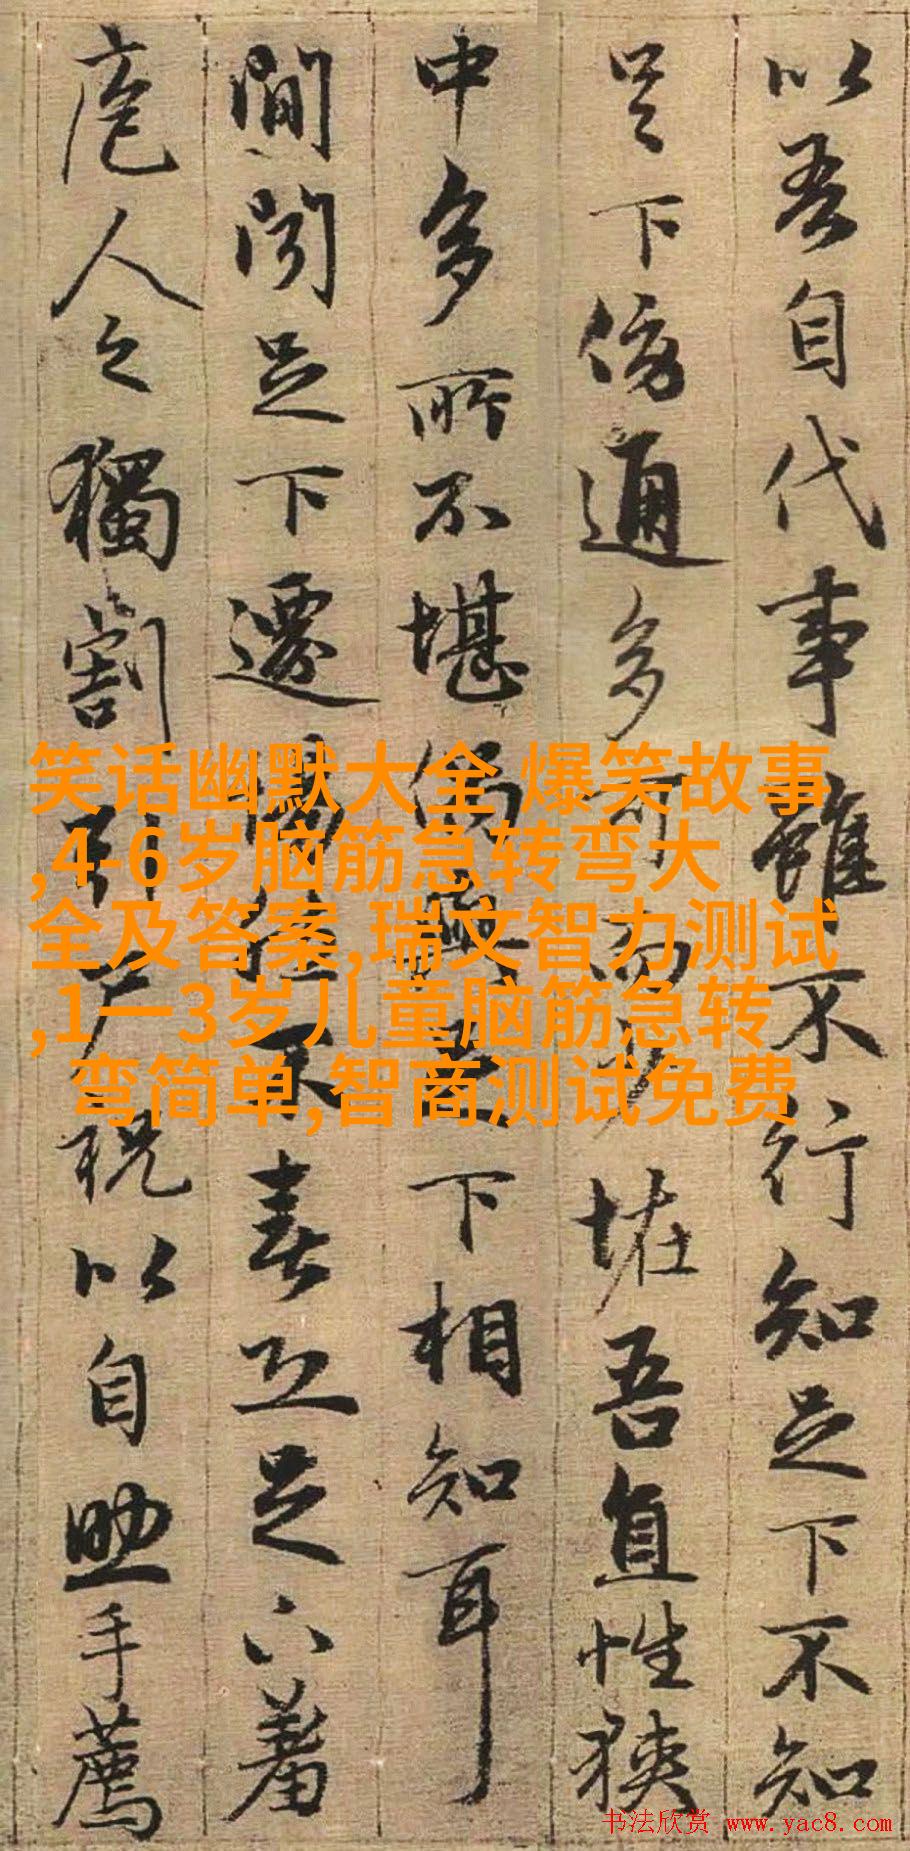 以吾自代事雖不行知足下不知
足下傍通多可而少恠吾直性狹
中多所不堪偶與足下相知耳
閒聞足下遷惕然不喜恐足下羞
庖人之獨割引尸祝以自助手薦
笑话幽默大全 爆笑故事
,4-6岁脑筋急转弯大
全及答案,瑞文智力测试
,1一3岁儿童脑筋急转
弯简单,智商测试免费
书法欣赏 www.yac8.com